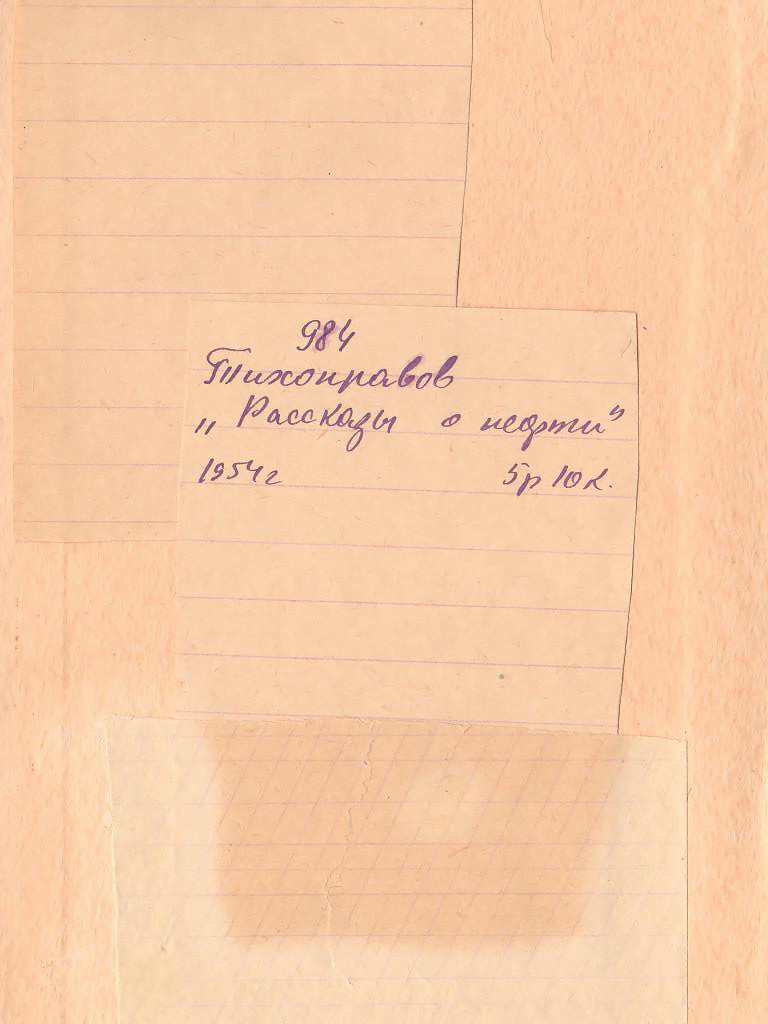 984
Тихонравов
„Рассказы о нефти"
1954г 5р 10к.